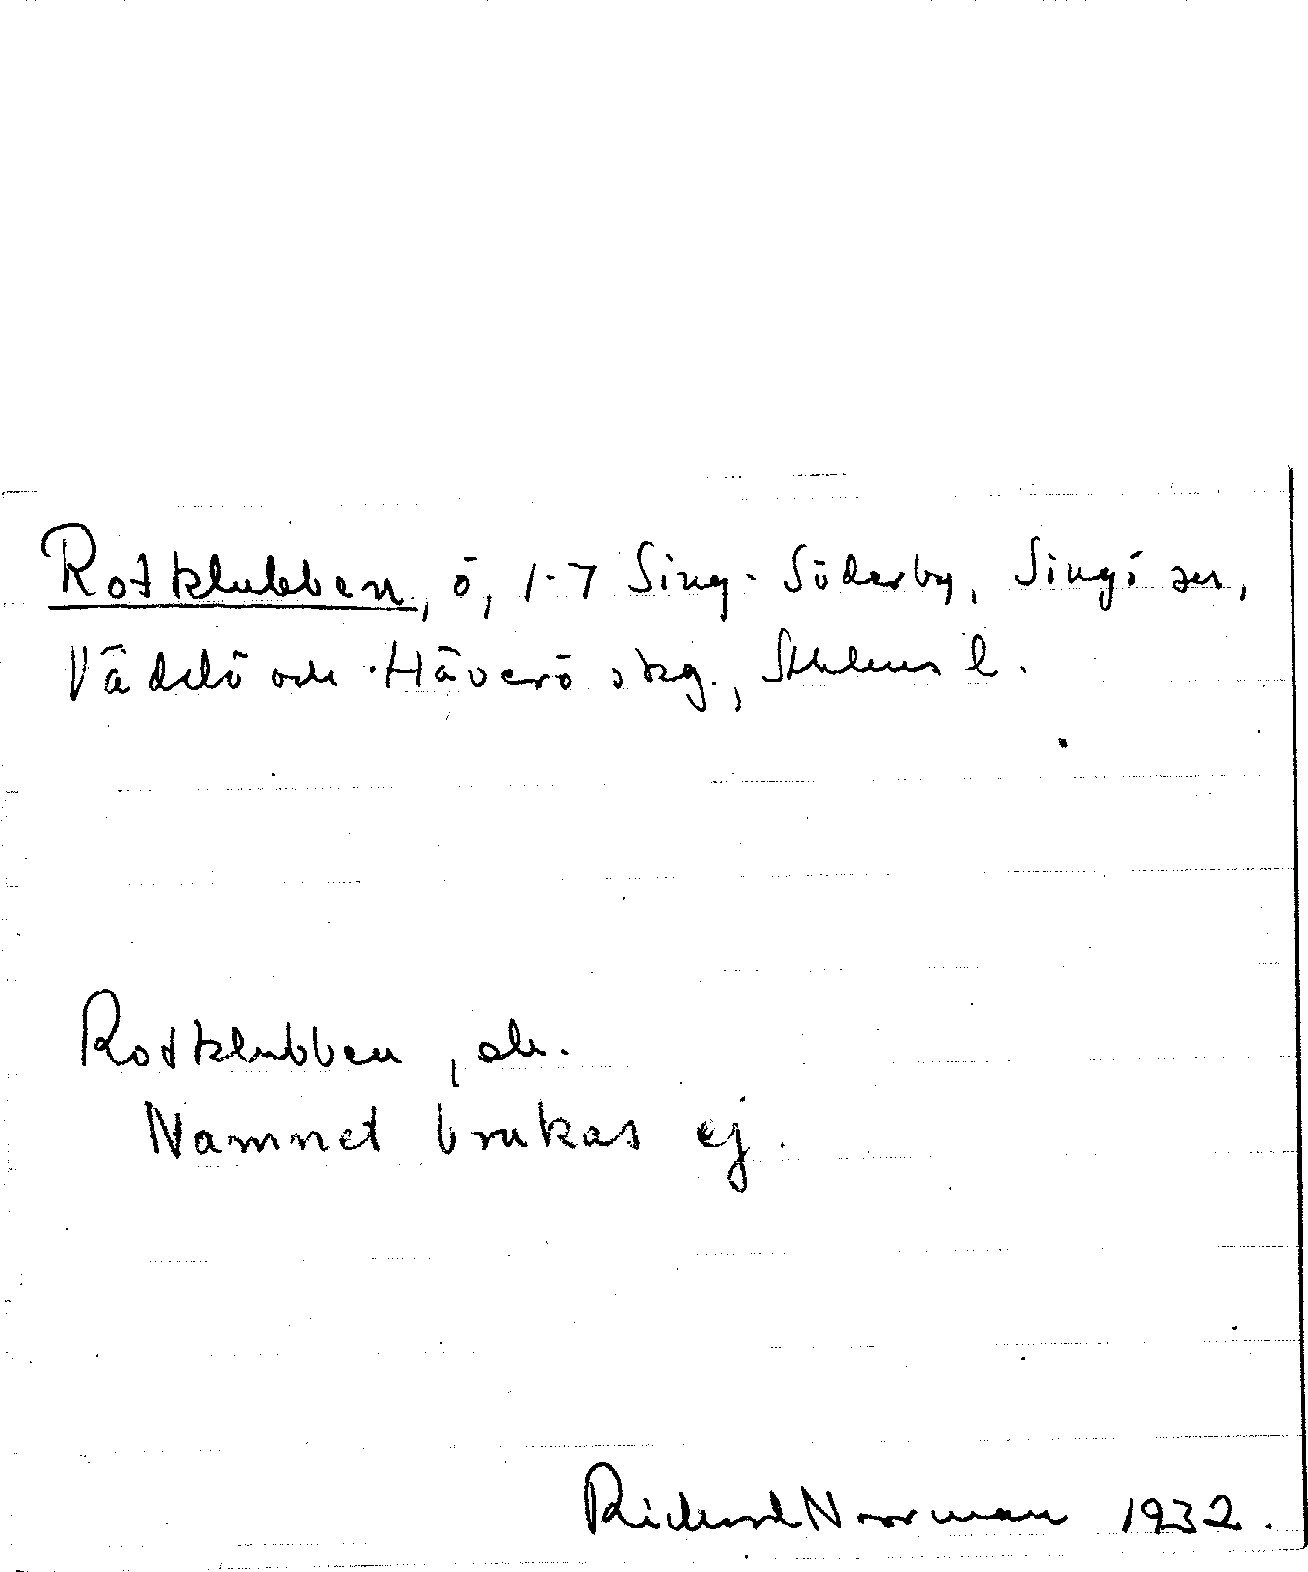 Rotklubben, ö, 1-7 Sing-Söderby, Singö sn,
Väddö och Häverö skg., Sthlms l.
Rotklubben, ek.
Namnet brukas ej.
Richard Norrman 1932.